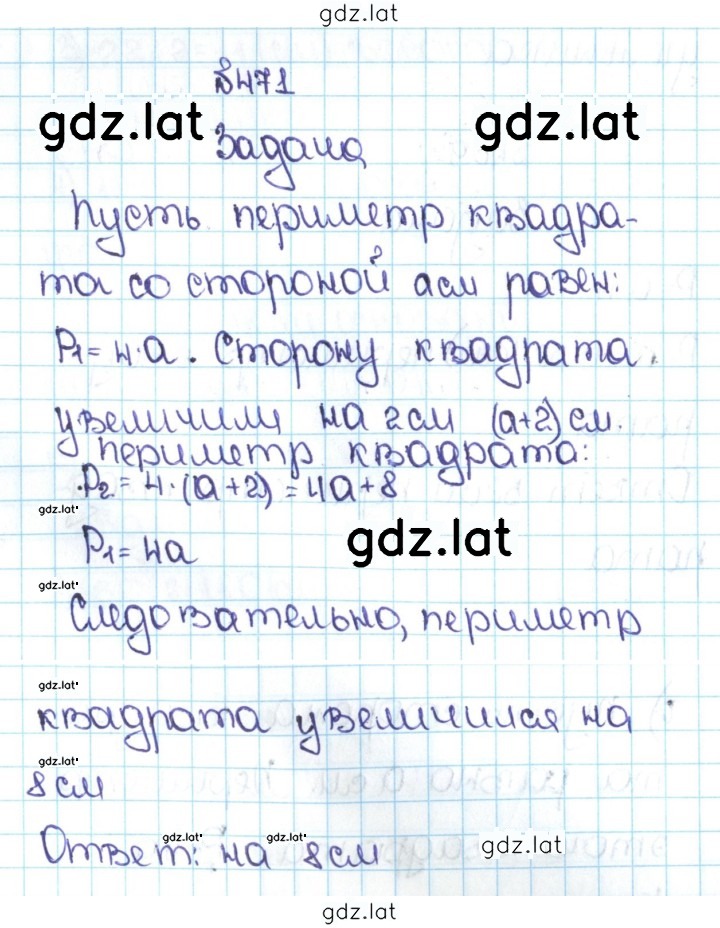 gdz.lat
№471
gdz.lat gdz.lat
Задача
Пусть периметр квадра-
та со стороной a см равен:
P₁ = 4·a. Сторону квадрата
увеличим на 2 см (a+2) см.
периметр квадрата:
P₂ = 4·(a+2) = 4a+8
gdz.lat
P₁ = 4a
gdz.lat
gdz.lat
Следовательно, периметр
gdz.lat
квадрата увеличился на
gdz.lat
8 см
gdz.lat gdz.lat gdz.lat
Ответ: на 8 см
gdz.lat